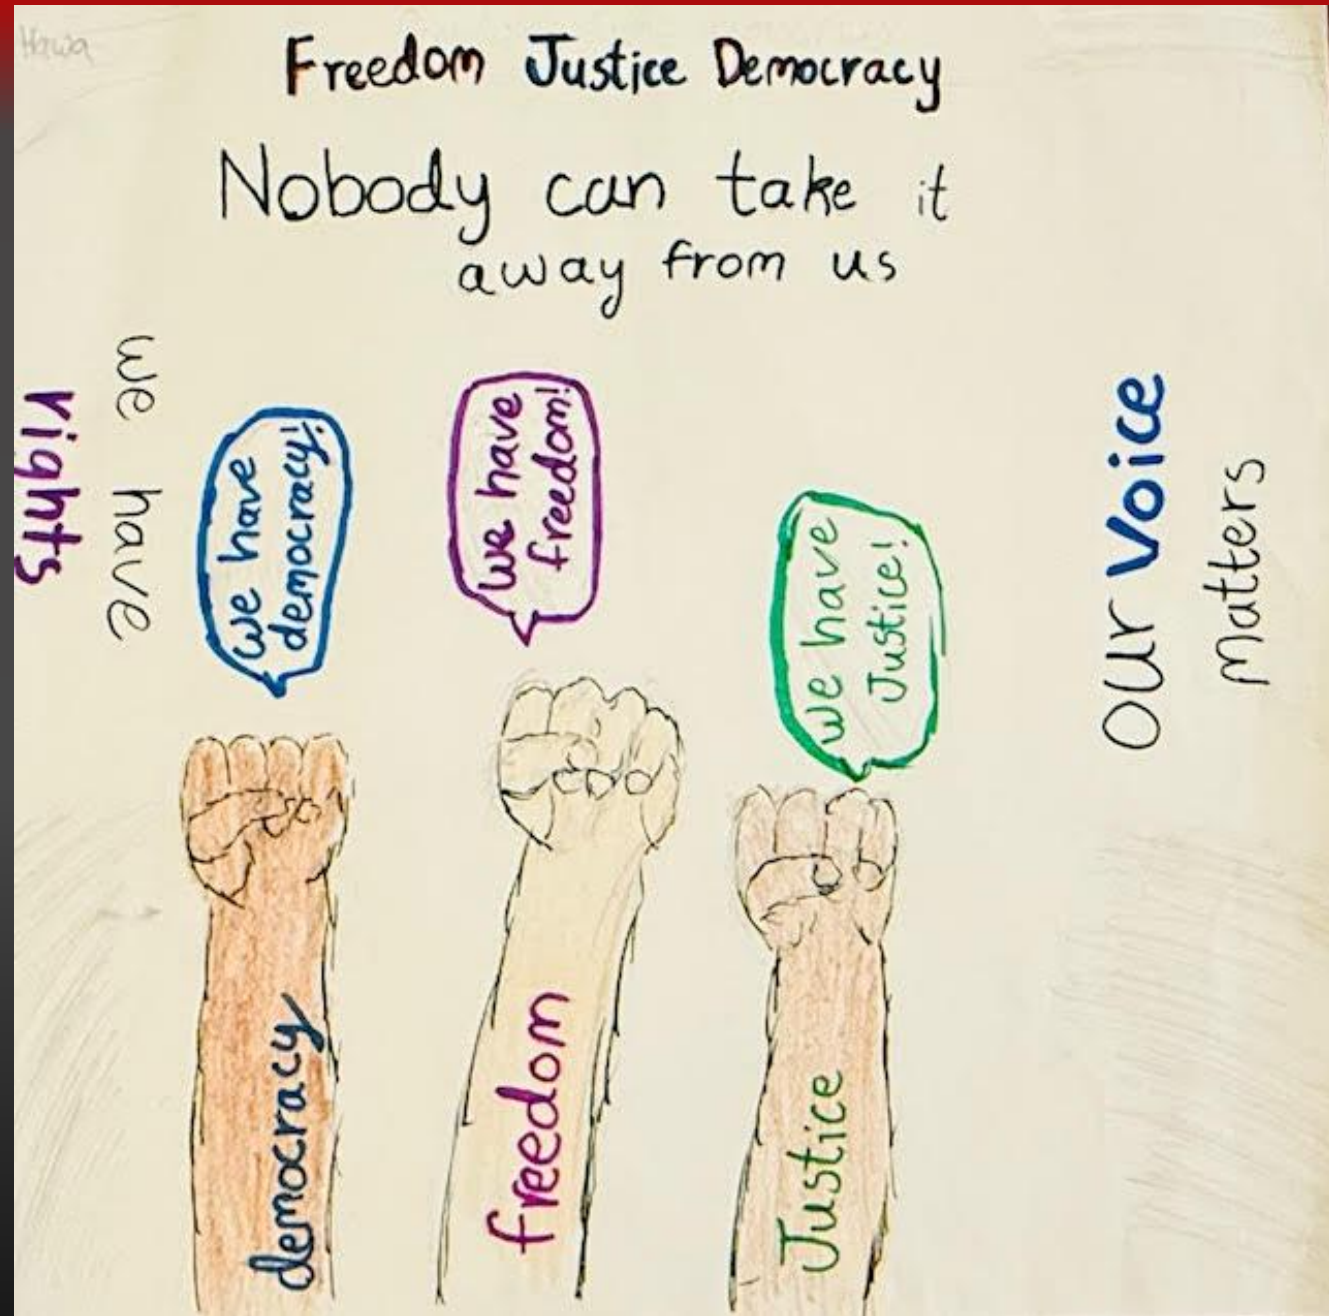 Hawa
Freedom Justice Democracy
Nobody can take it
away from us
we have
rights
we have
democracy!
we have
freedom!
we have
Justice!
OUr Voice
matters
democracy
freedom
Justice